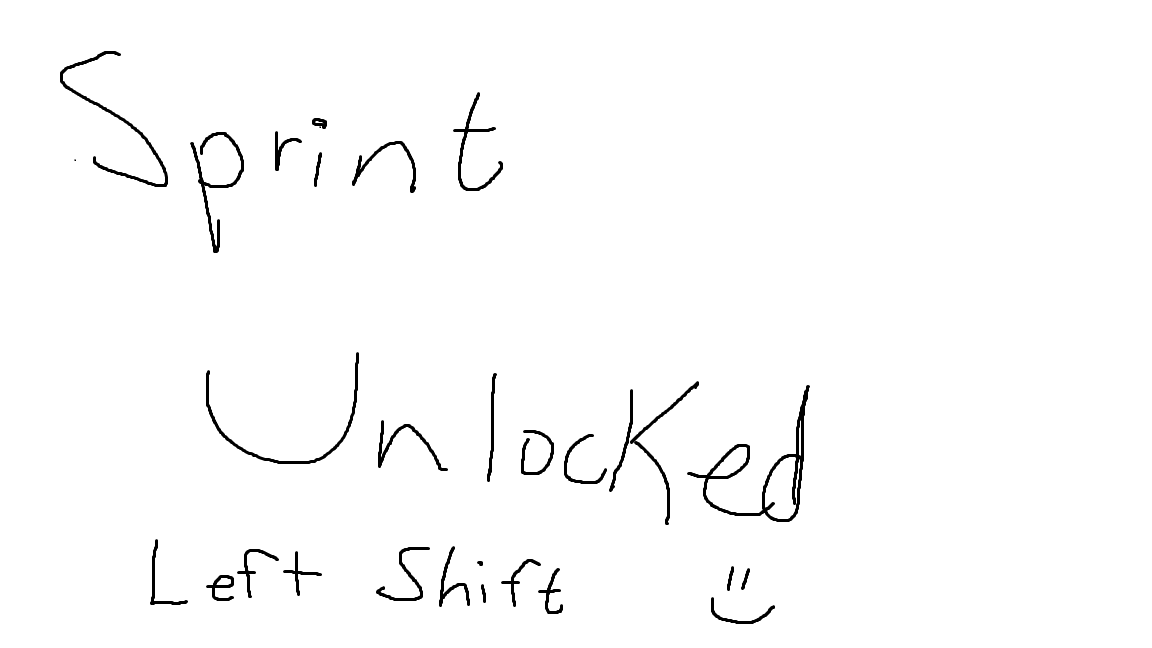 Sprint
Unlocked
Left Shift